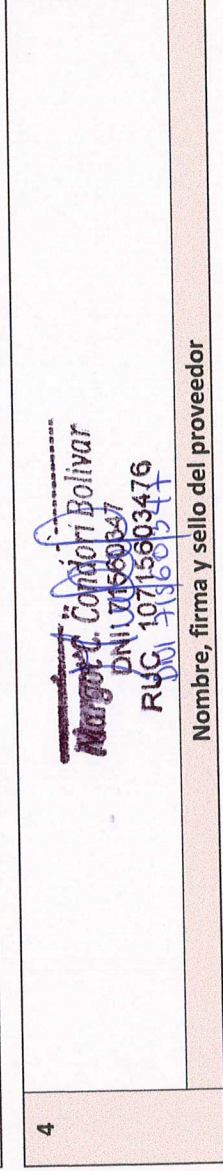 4
Margot C. Condori Bolivar
DNI 71560347
RUC. 10715603476
DNI 71560347
Nombre, firma y sello del proveedor